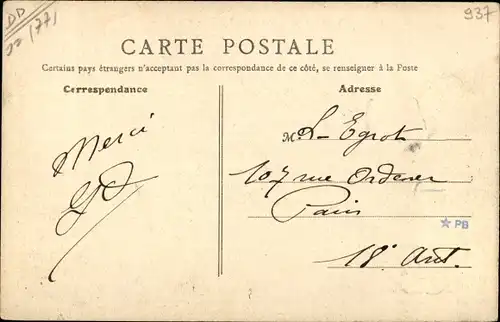 DD
937
CARTE POSTALE
Certains pays étrangers n'acceptant pas la correspondance de ce côté, se renseigner à la Poste
Correspondance
Adresse
Merci
M. Egrot
107 rue Ordener
Paris
PB
18e Arrt.